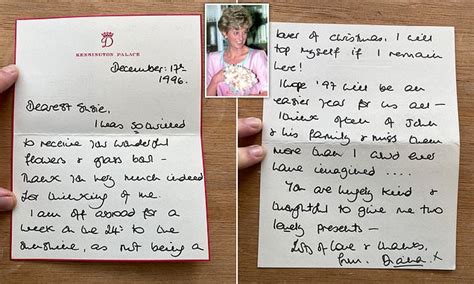 D
KENSINGTON PALACE
December. 17th
1996.
Dearest Susie,
I was so thrilled
to receive your wonderful
flowers & glass ball -
Thank you very much indeed
for thinking of me.
I am off abroad for a
week on the 24th to the
sunshine, as not being a
lover of Christmas, I will
top myself if I remain
here!
I hope '97 will be an
easier year for us all -
I think often of John
& his family & miss them
more than I could ever
have imagined ....
You are hugely kind &
thoughtful to give me two
lovely presents -
Lots of love & thanks,
from Diana. x